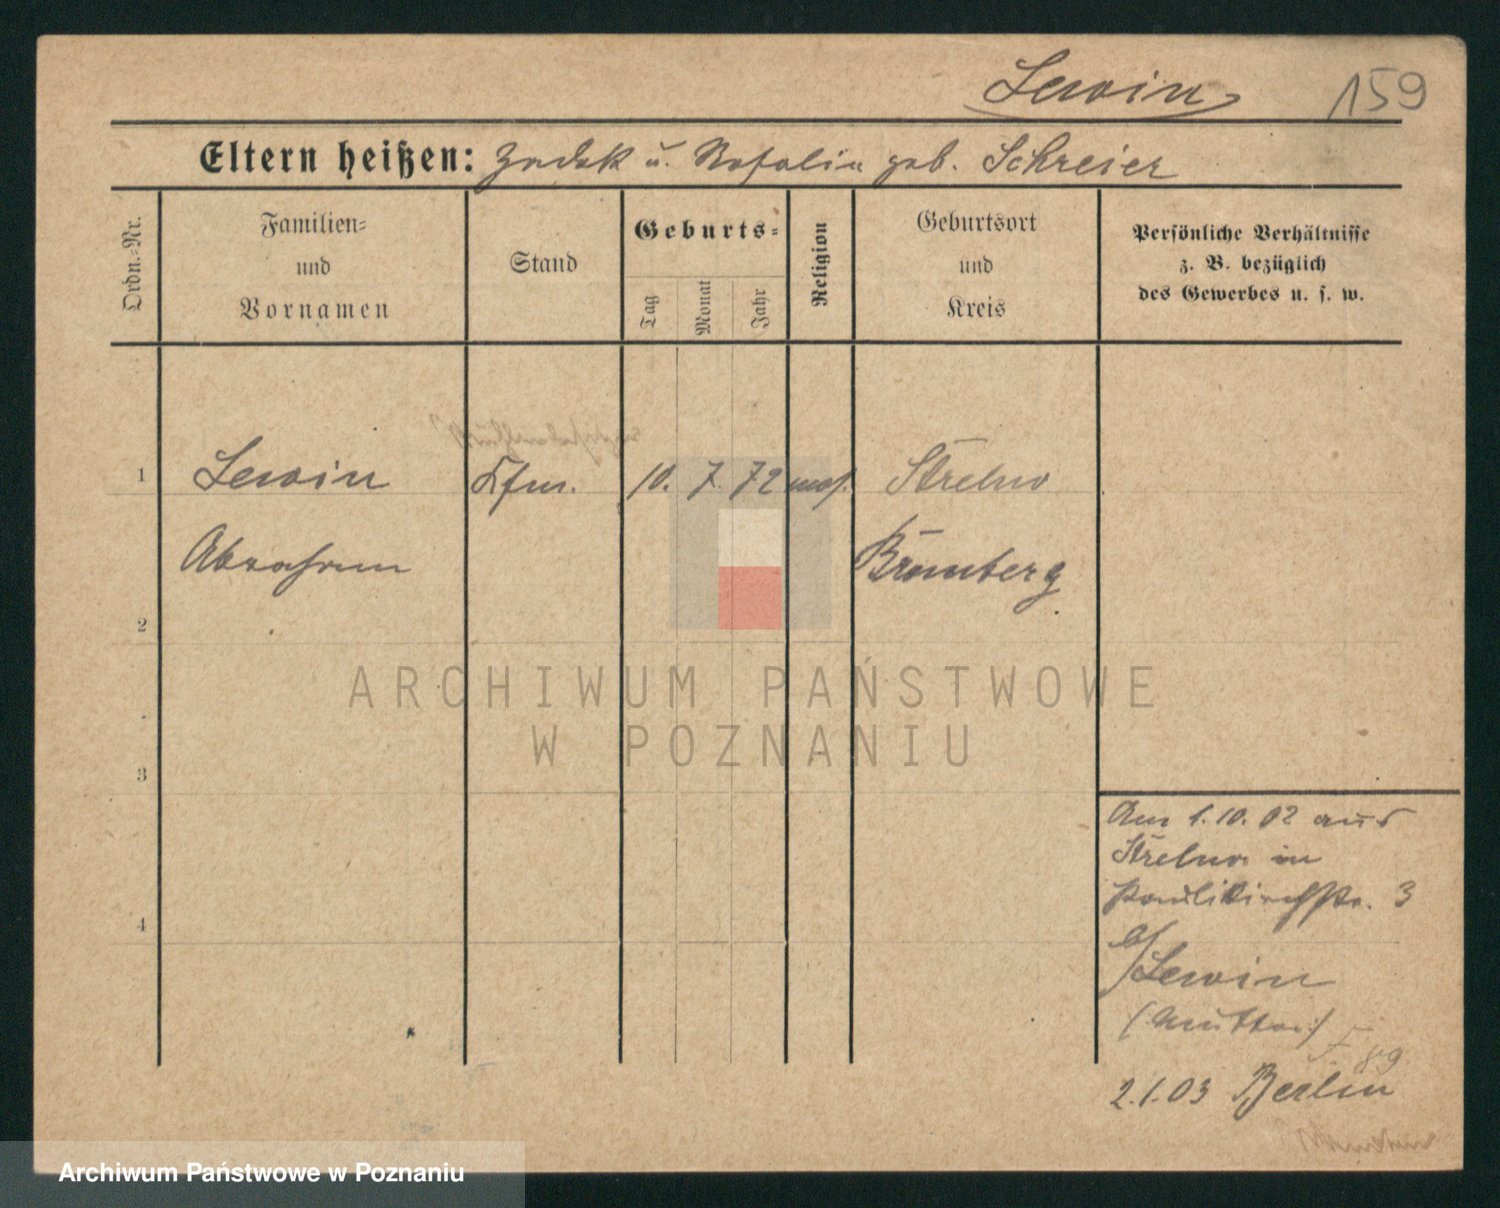 Lewin 159
Eltern heißen: Zadek u. Rosalie geb. Schreier
Ordn.-Nr.
Familien-
und
Vornamen
Stand
Geburts-
Tag
Monat
Jahr
Religion
Geburtsort
und
Kreis
Persönliche Verhältnisse
z. B. bezüglich
des Gewerbes u. s. w.
1 Lewin Kfm. 10. 7. 72 mos. Strelno
Abraham Bromberg
2
3
4
Am 1.10.02 aus
Strelno in
Paulikirchstr. 3
b/Lewin
(Mutter)
89
2.1.03 Berlin
ARCHIWUM PAŃSTWOWE
W POZNANIU
Archiwum Państwowe w Poznaniu